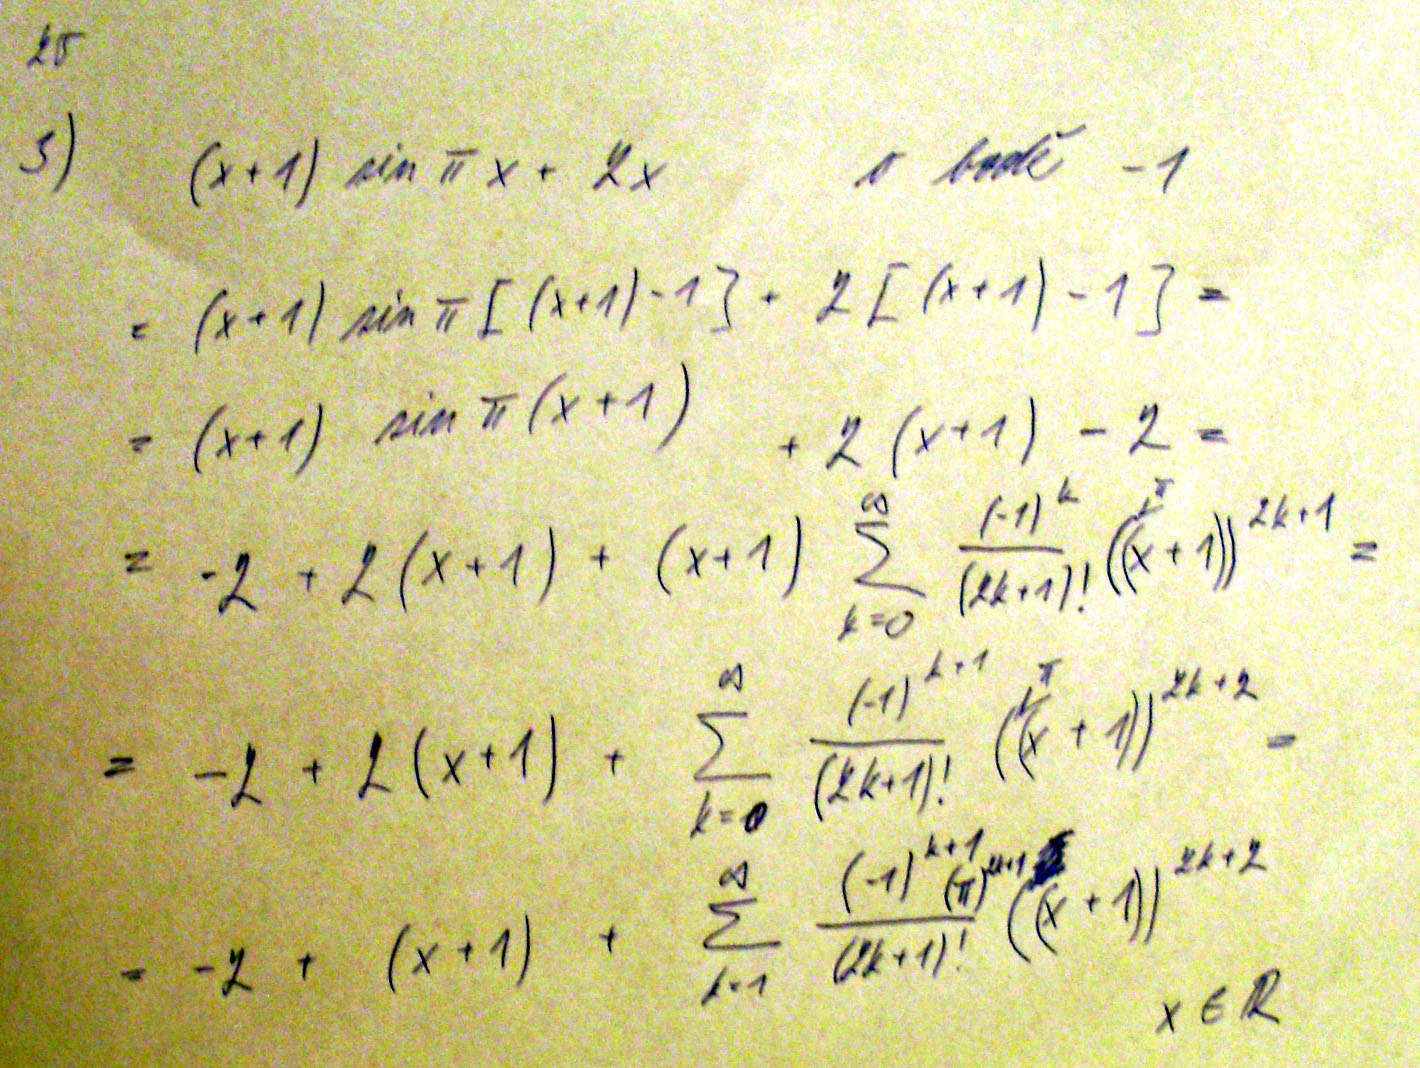 3) (x+1) sin π x + 2x v bodě -1
= (x+1) sin π [(x+1)-1] + 2 [(x+1)-1] =
= (x+1) sin π (x+1) + 2 (x+1) - 2 =
= -2 + 2 (x+1) + (x+1) ∑_{k=0}^{∞} \frac{(-1)^k}{(2k+1)!} (π(x+1))^{2k+1} =
= -2 + 2 (x+1) + ∑_{k=0}^{∞} \frac{(-1)^{k+1}}{(2k+1)!} (π(x+1))^{2k+2} =
= -2 + (x+1) + ∑_{k=1}^{∞} \frac{(-1)^{k+1} (π)^{2k+1}}{(2k+1)!} ((x+1))^{2k+2}
x ∈ ℝ